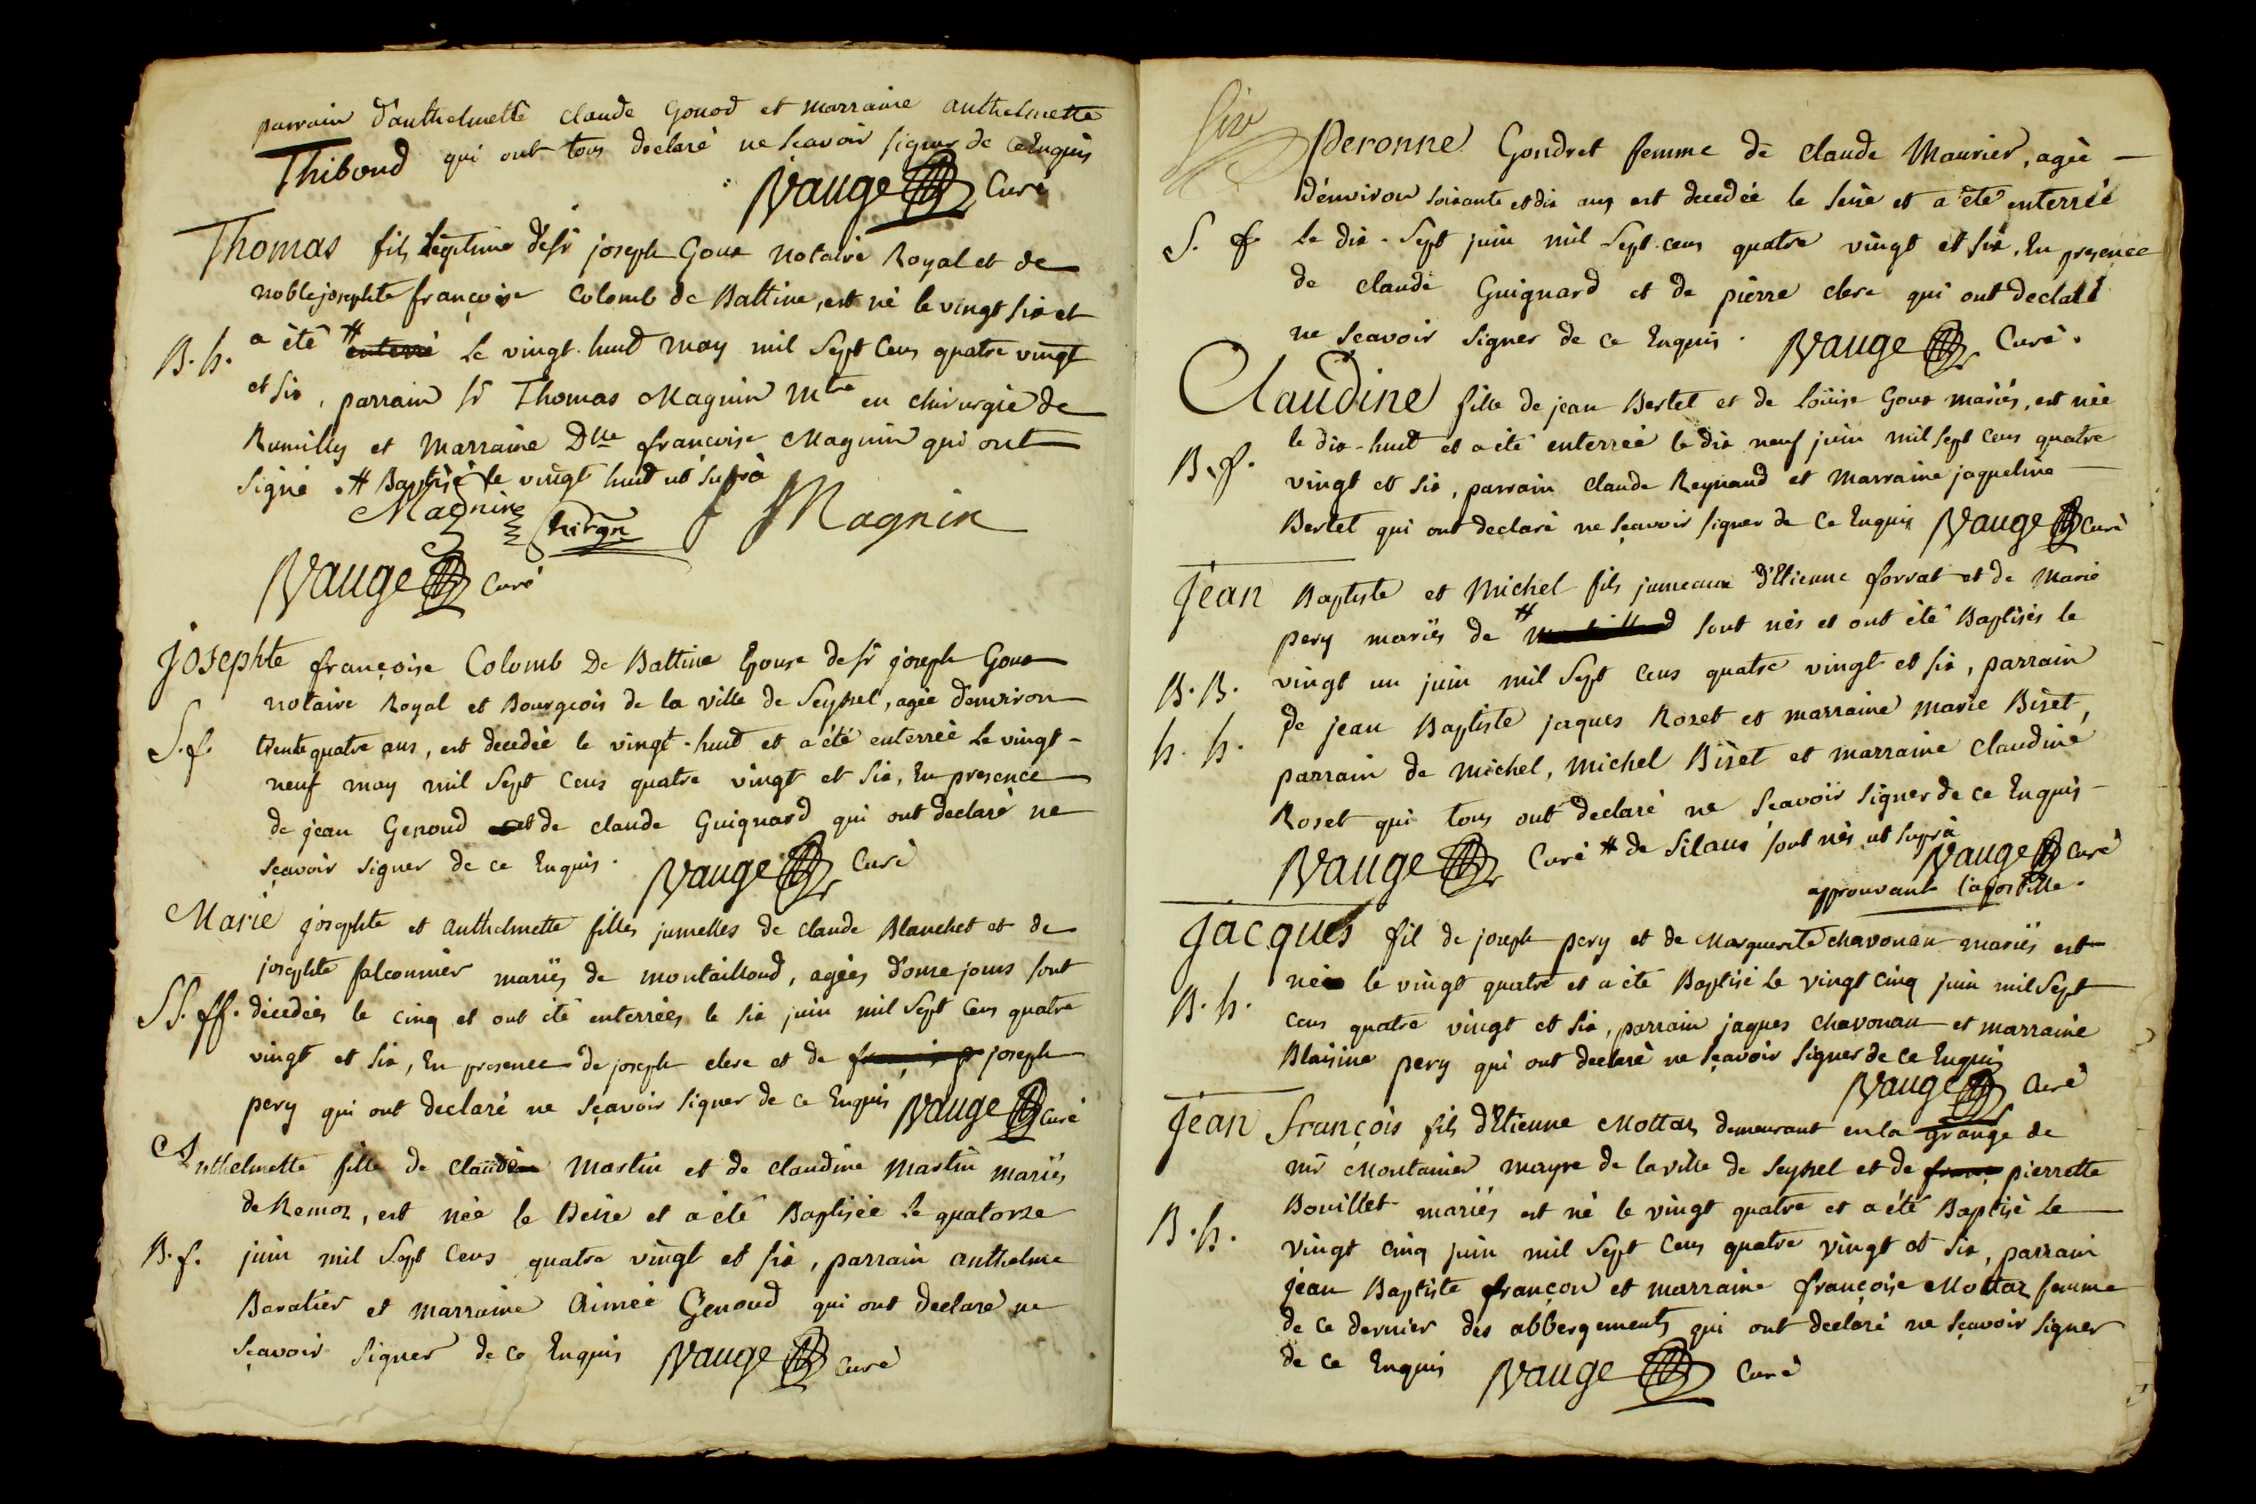 parrain d'anthelmette claude Gonod et marraine anthelmette
Thiboud qui ont tous declaré ne scavoir signer de ce Enquis
Vauge Curé
Thomas fils légitime de sr joseph Goux notaire Royal et de
noble josephte françoise Colomb de Battine, est né le vingt six et
B. h. a été # enterré le vingt-huit may mil Sept Cens quatre vingt
et six, parrain sr Thomas Magnin Mtre en chirurgie de
Rumilly et Marraine Dlle francoise Magnin qui ont
signé. # Baptisé le vingt huit ut suprà
Magnin Chirgn f Magnin
Vauge Curé
josephte françoise Colomb De Battine Epouse de sr joseph Goux
notaire Royal et Bourgeois de la ville de Seyssel, agée d'environ
S. f. trente quatre ans, est decedée le vingt-huit et a été enterrée le vingt-
neuf may mil Sept Cens quatre vingt et six, En presence
de jean Genoud et de claude Guignard qui ont declaré ne
sçavoir signer de ce Enquis. Vauge Curé
Marie josephte et anthelmette filles jumelles de claude Blanchet et de
josephte falconnier mariés de montailloud, agées d'onze jours sont
SS. ff. décedées le cinq et ont été enterrées le six juin mil Sept Cens quatre
vingt et six, En presence de joseph clerc et de joseph
pery qui ont declaré ne sçavoir signer de ce Enquis Vauge Curé
Anthelmette fille de claude Martin et de claudine Martin mariés
de Remoz, est née le treize et a été Baptisée le quatorze
B. f. juin mil Sept Cens quatre vingt et six, parrain anthelme
Baratier et marraine Aimée Genoud qui ont declaré ne
sçavoir signer de ce Enquis Vauge Curé
Six
Peronne Gondret femme de claude Maurier, agée
d'environ soixante et dix ans est decedée le seize et a été enterrée
S. f. le dix-Sept juin mil Sept-cens quatre vingt et six, En presence
de claude Guignard et de pierre clerc qui ont declaré
ne sçavoir signer de ce Enquis. Vauge Curé.
Claudine fille de jean Bertet et de Loüise Goux mariés, est née
le dix-huit et a été enterreé le dix neuf juin mil sept cens quatre
B. f. vingt et six, parrain claude Reynaud et marraine jaqueline
Bertet qui ont declaré ne sçavoir signer de Ce Enquis Vauge Curé
jean Baptiste et Michel fils jumeaux d'Etienne forrat et de Marie
pery mariés de # sont nés et ont été Baptisés le
B. B. vingt un juin mil Sept Cens quatre vingt et six, parrain
h. h. de jean Baptiste jaques Rozet et marraine marie Bizet,
parrain de michel, michel Bizet et marraine claudine
Rozet qui tous ont declaré ne sçavoir signer de ce Enquis
Vauge Curé # de Silans sont nés ut suprà Vauge Curé
approuvant l'apostille.
jacques fil de joseph pery et de Marguerite chavonan mariés est
né le vingt quatre et a été Baptisé le vingt cinq juin mil Sept
B. h. cens quatre vingt et six, parrain jaques chavonan et marraine
Blaisine pery qui ont declaré ne sçavoir signer de ce Enquis
Vauge Curé
jean François fils d'Etienne Mottaz demeurant en la grange de
mr Montanier mayre de la ville de Seyssel et de pierrette
Bouillet mariés est né le vingt quatre et a été Baptisé le
B. h. vingt cinq juin mil Sept Cens quatre vingt et six, parrain
jean Baptiste françon et marraine françoise Mottaz femme
de ce dernier des abbergements qui ont declaré ne sçavoir signer
de ce Enquis Vauge Curé